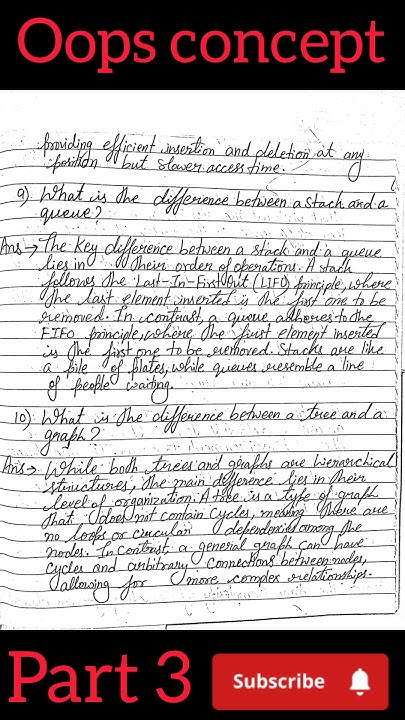 Oops concept
providing efficient insertion and deletion at any
position but slower access time.
9) What is the difference between a stack and a
queue?
Ans → The key difference between a stack and a queue
lies in their order of operations. A stack
follows the Last-In-First-Out (LIFO) principle, where
the last element inserted is the first one to be
removed. In contrast, a queue adheres to the
FIFO principle, where the first element inserted
is the first one to be removed. Stacks are like
a pile of plates, while queues resemble a line
of people waiting.
10) What is the difference between a tree and a
graph?
Ans → While both trees and graphs are hierarchical
structures, the main difference lies in their
level of organization. A tree is a type of graph
that does not contain cycles, meaning there are
no loops or circular dependencies among the
nodes. In contrast, a general graph can have
cycles and arbitrary connections between nodes,
allowing for more complex relationships.
Part 3
Subscribe